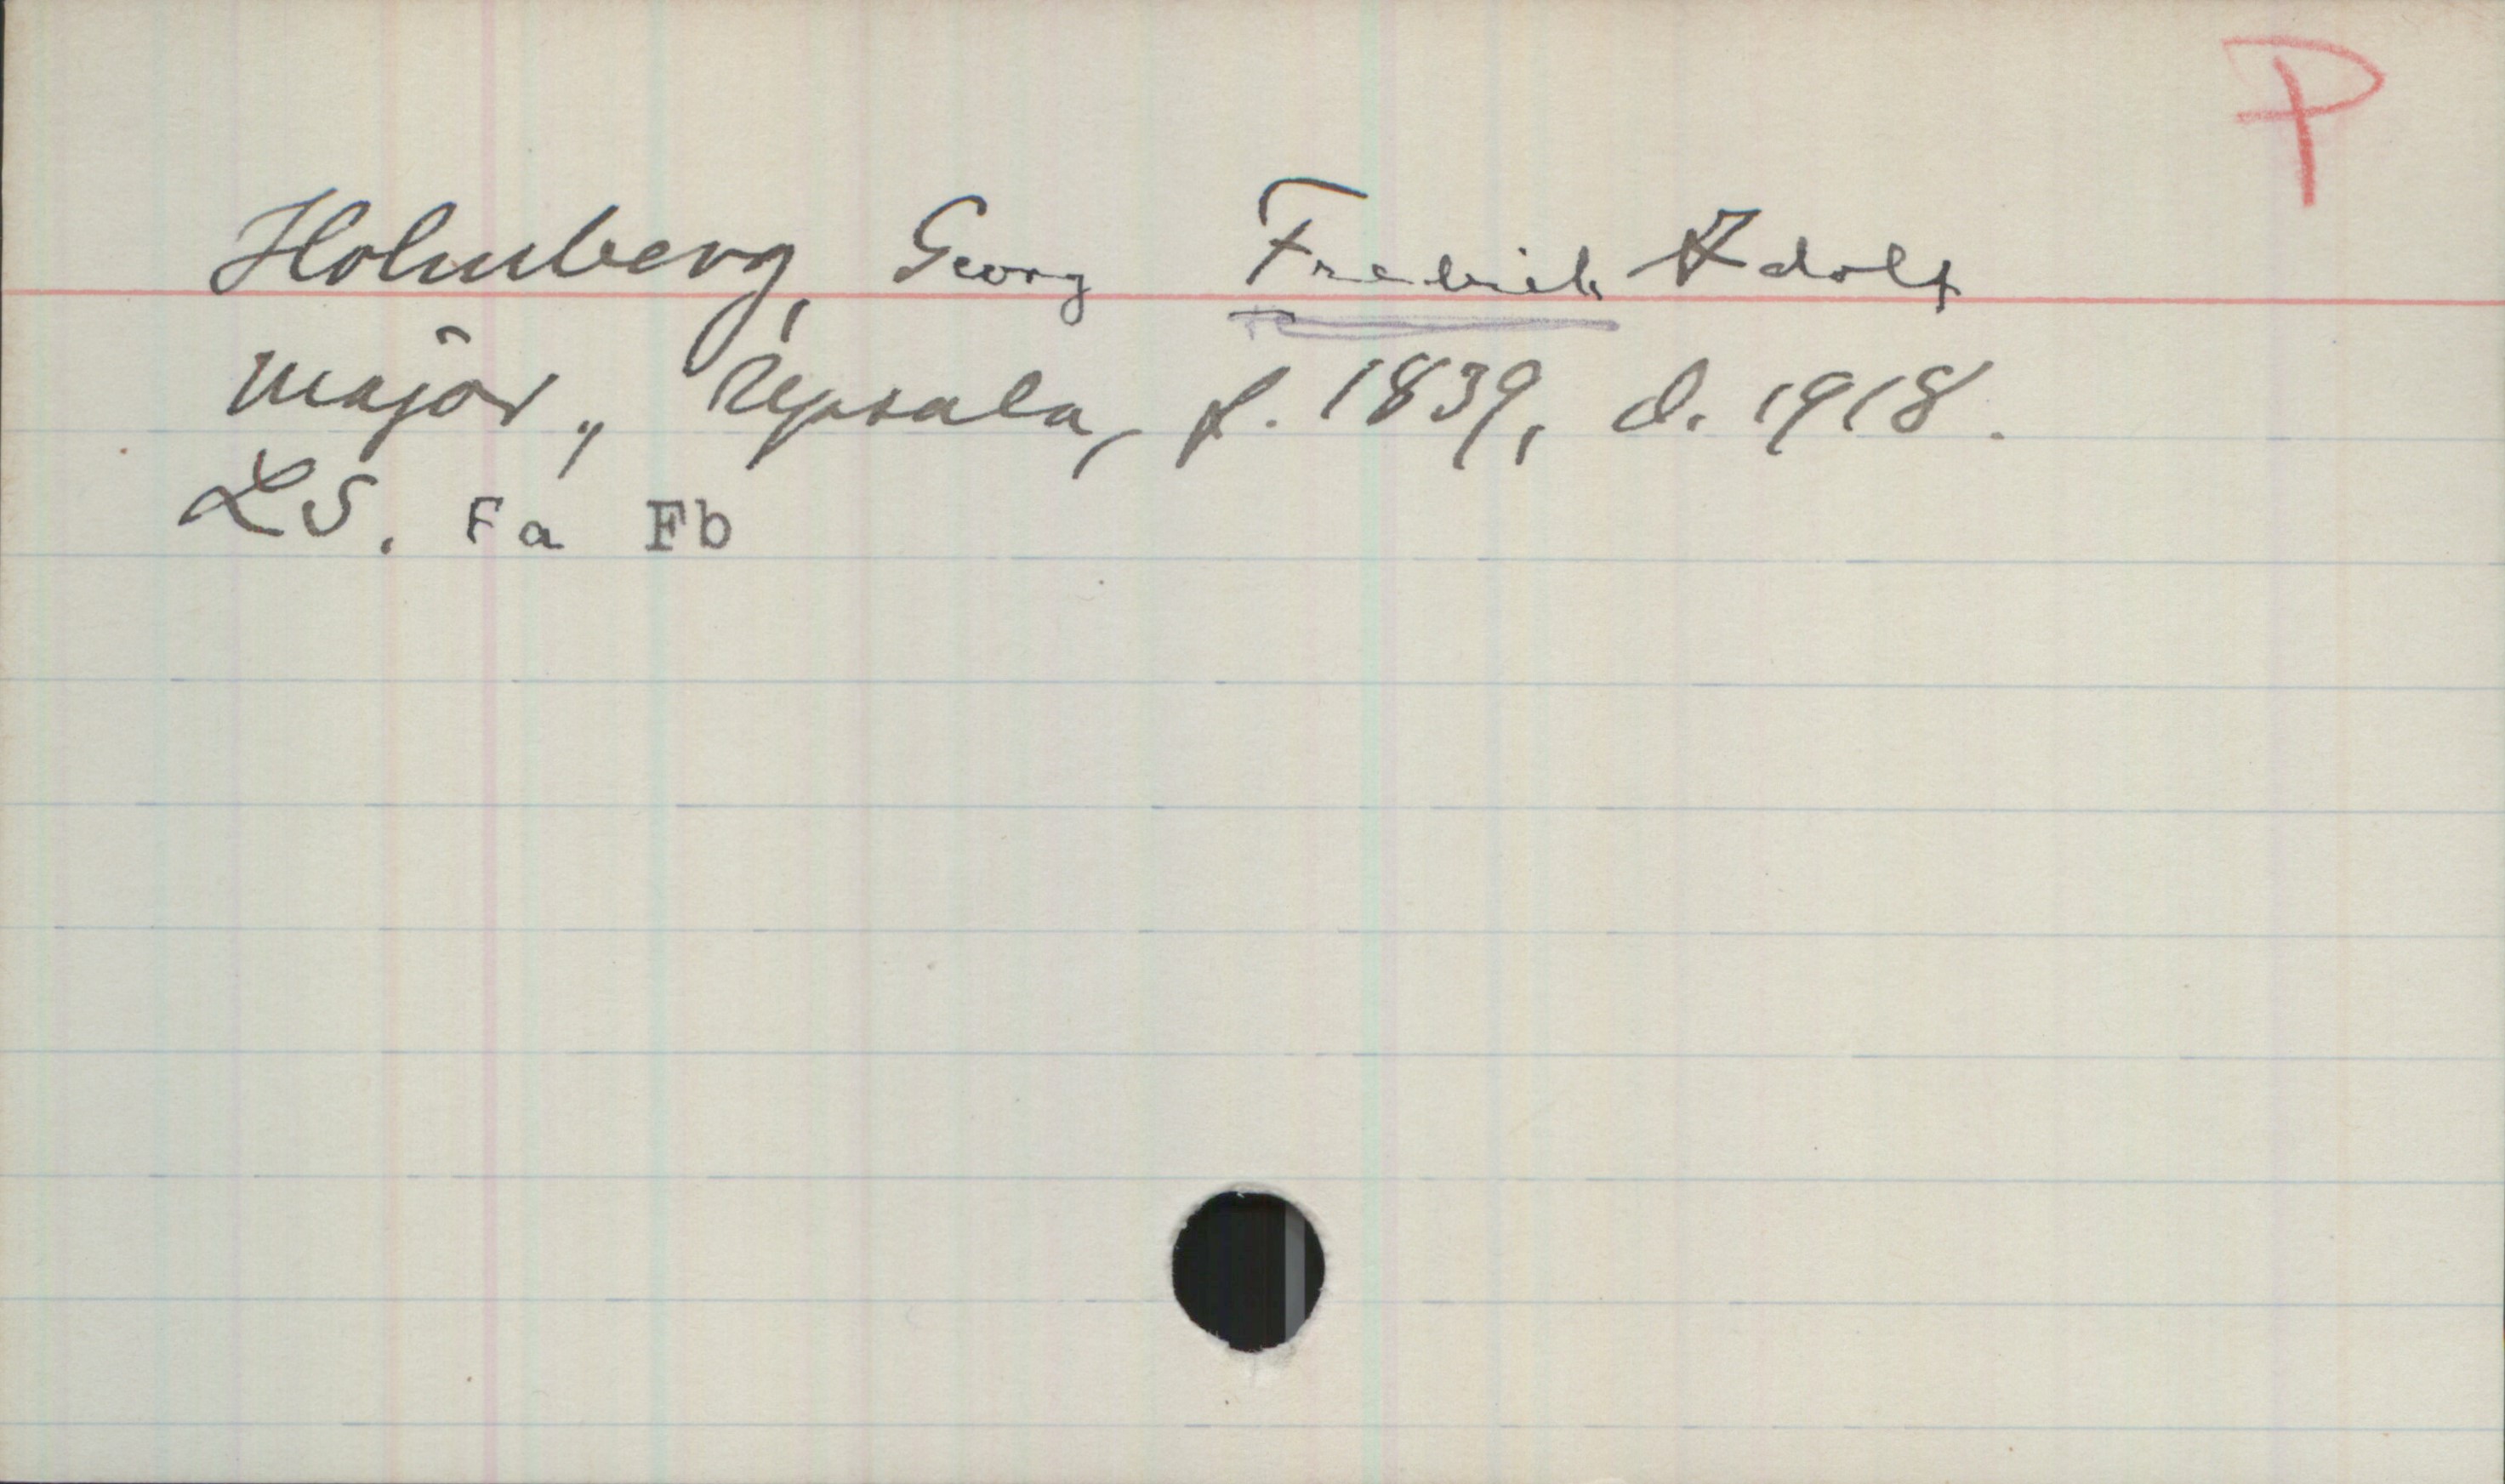 P
Holmberg, Georg Fredrik Adolf
major, Upsala, f. 1839, d. 1918.
LS. Fa Fb